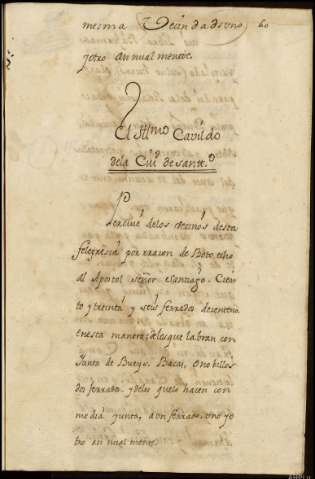 mesma Vecindad o uno 60
y otro annualmente.
El Illmo Cavildo
de la Ciud de Santo
Percive de los vecinos desta
felegresia por rrazon de Boto echo
al Apostol Señor Santiago. Cien
to y treinta y seis ferrados de centeno
en esta manera; de los que labran con
Junta de Bueys, Bacas, o nobillos
dos ferrados, y de los que lo hacen con
media junta, a un ferrado, uno y o
tro annualmente.